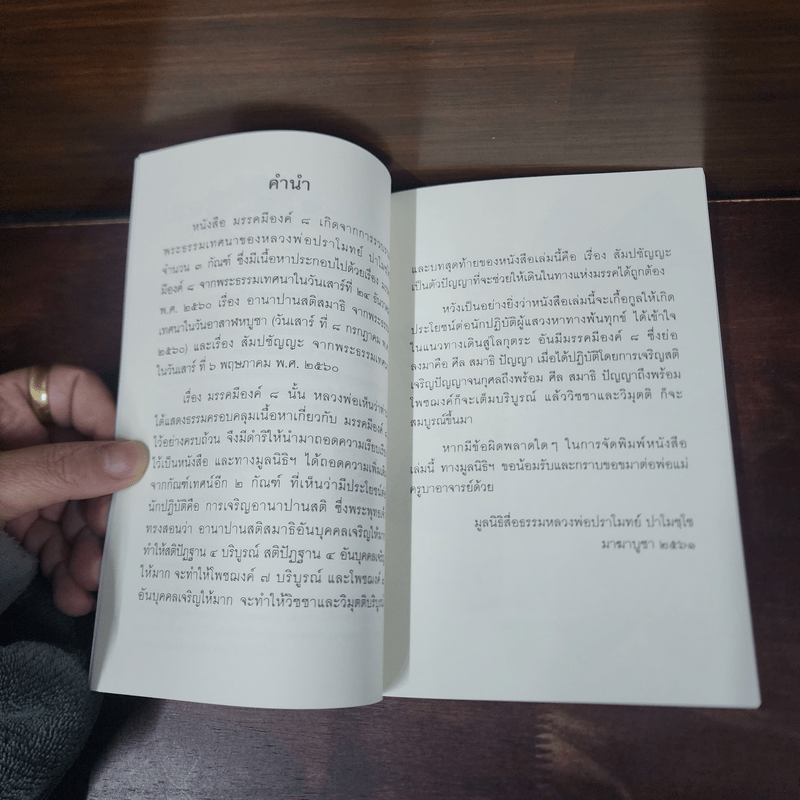 คำนำ
หนังสือ มรรคมีองค์ ๘ เกิดจากการรวบรวม
พระธรรมเทศนาของหลวงพ่อปราโมทย์ ปาโมชฺโช
จำนวน ๓ กัณฑ์ ซึ่งมีเนื้อหาประกอบไปด้วยเรื่อง
มีองค์ ๘ จากพระธรรมเทศนาในวันเสาร์ที่
พ.ศ. ๒๕๖๐ เรื่อง อานาปานสติสมาธิ จากพระธรรม
เทศนาในวันอาสาฬหบูชา (วันเสาร์ ที่ ๘ กรกฎาคม พ.ศ.
๒๕๖๐) และเรื่อง สัมปชัญญะ จากพระธรรมเทศนา
ในวันเสาร์ ที่ ๖ พฤษภาคม พ.ศ. ๒๕๖๐
เรื่อง มรรคมีองค์ ๘ นั้น หลวงพ่อเห็นว่า
ได้แสดงธรรมครอบคลุมเนื้อหาเกี่ยวกับ มรรคมีองค์
ไว้อย่างครบถ้วน จึงมีดำริให้นำมาถอดความเรียบเรียง
ไว้เป็นหนังสือ และทางมูลนิธิฯ ได้ถอดความเพิ่มเติม
จากกัณฑ์เทศน์อีก ๒ กัณฑ์ ที่เห็นว่ามีประโยชน์
นักปฏิบัติคือ การเจริญอานาปานสติ ซึ่งพระพุทธ
ทรงสอนว่า อานาปานสติสมาธิอันบุคคลเจริญให้มาก
ทำให้สติปัฏฐาน ๔ บริบูรณ์ สติปัฏฐาน ๔ อันบุคคลเจริญ
ให้มาก จะทำให้โพชฌงค์ ๗ บริบูรณ์ และโพชฌงค์
อันบุคคลเจริญให้มาก จะทำให้วิชชาและวิมุตติบริบูรณ์
และบทสุดท้ายของหนังสือเล่มนี้คือ เรื่อง สัมปชัญญะ
เป็นตัวปัญญาที่จะช่วยให้เดินในทางแห่งมรรคได้ถูกต้อง
หวังเป็นอย่างยิ่งว่าหนังสือเล่มนี้จะเกื้อกูลให้เกิด
ประโยชน์ต่อนักปฏิบัติผู้แสวงหาทางพ้นทุกข์ ได้เข้าใจ
ในแนวทางเดินสู่โลกุตระ อันมีมรรคมีองค์ ๘ ซึ่งย่อ
ลงมาคือ ศีล สมาธิ ปัญญา เมื่อได้ปฏิบัติโดยการเจริญสติ
เจริญปัญญาจนกุศลถึงพร้อม ศีล สมาธิ ปัญญาถึงพร้อม
โพชฌงค์ก็จะเต็มบริบูรณ์ แล้ววิชชาและวิมุตติ ก็จะ
สมบูรณ์ขึ้นมา
หากมีข้อผิดพลาดใดๆ ในการจัดพิมพ์หนังสือ
เล่มนี้ ทางมูลนิธิฯ ขอน้อมรับและกราบขอขมาต่อพ่อแม่
ครูบาอาจารย์ด้วย
มูลนิธิสื่อธรรมหลวงพ่อปราโมทย์ ปาโมชฺโช
มาฆบูชา ๒๕๖๑